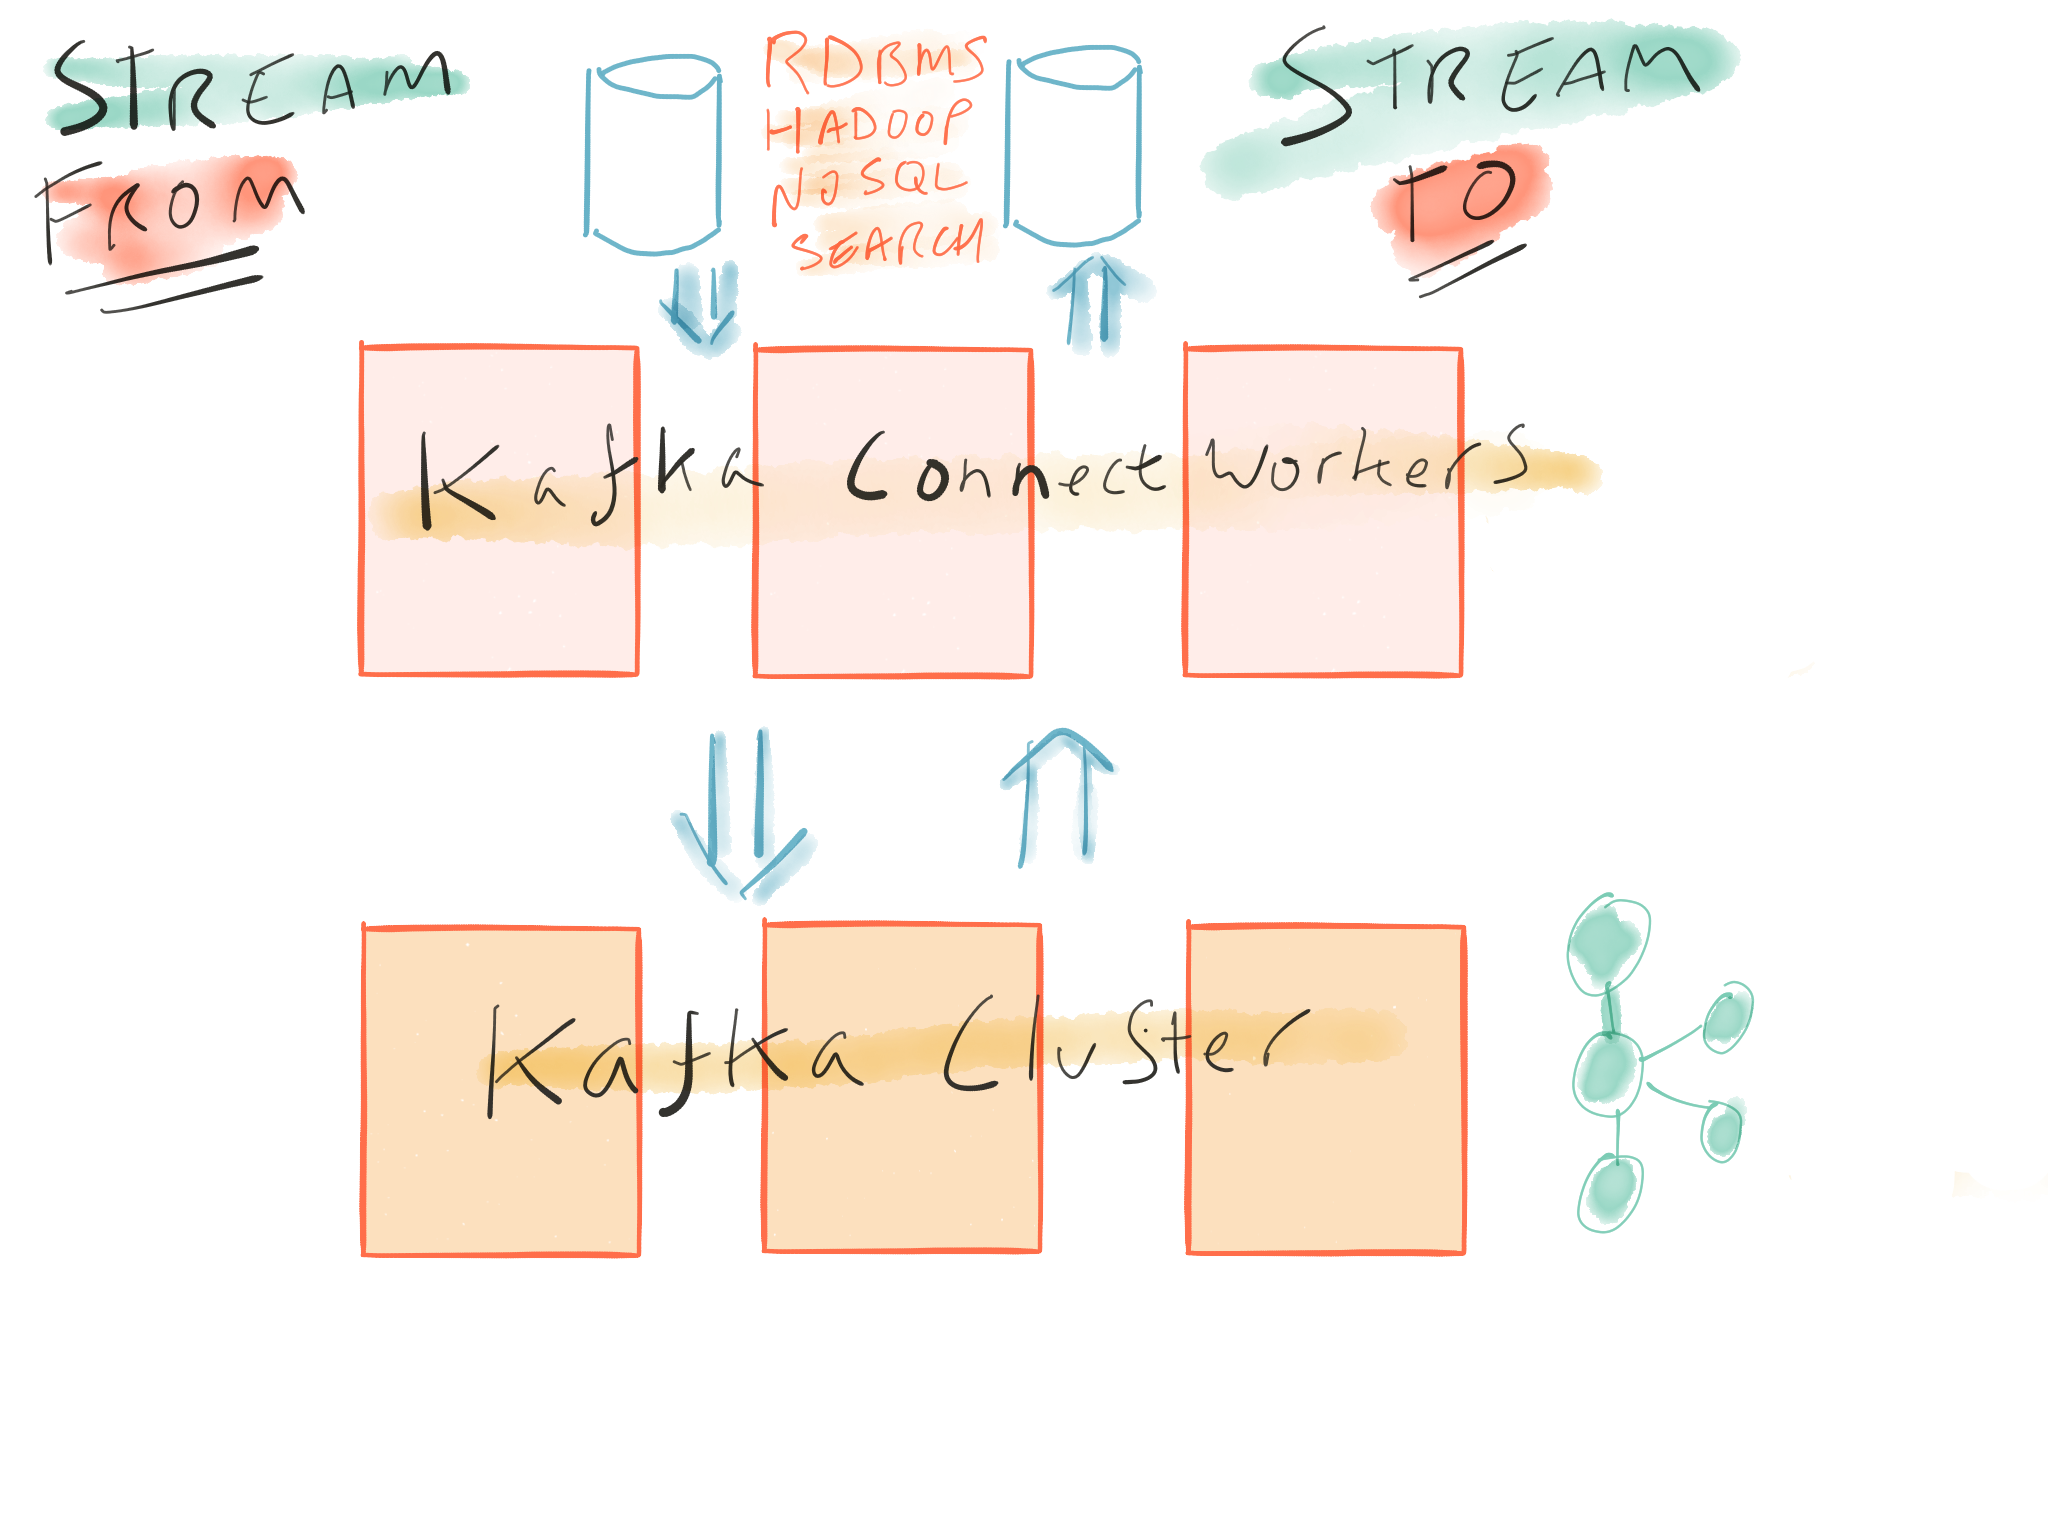 STREAM
FROM
RDBMS
HADOOP
NOSQL
SEARCH
STREAM
TO
Kafka Connect Workers
Kafka Cluster